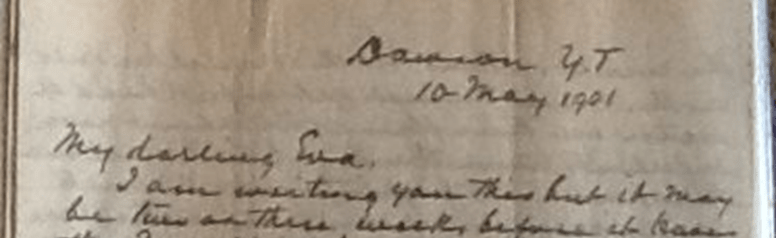 Dawson Y.T
10 May 1901
My darling Eva.
I am writing you this but it may
be two or three weeks before it leaves